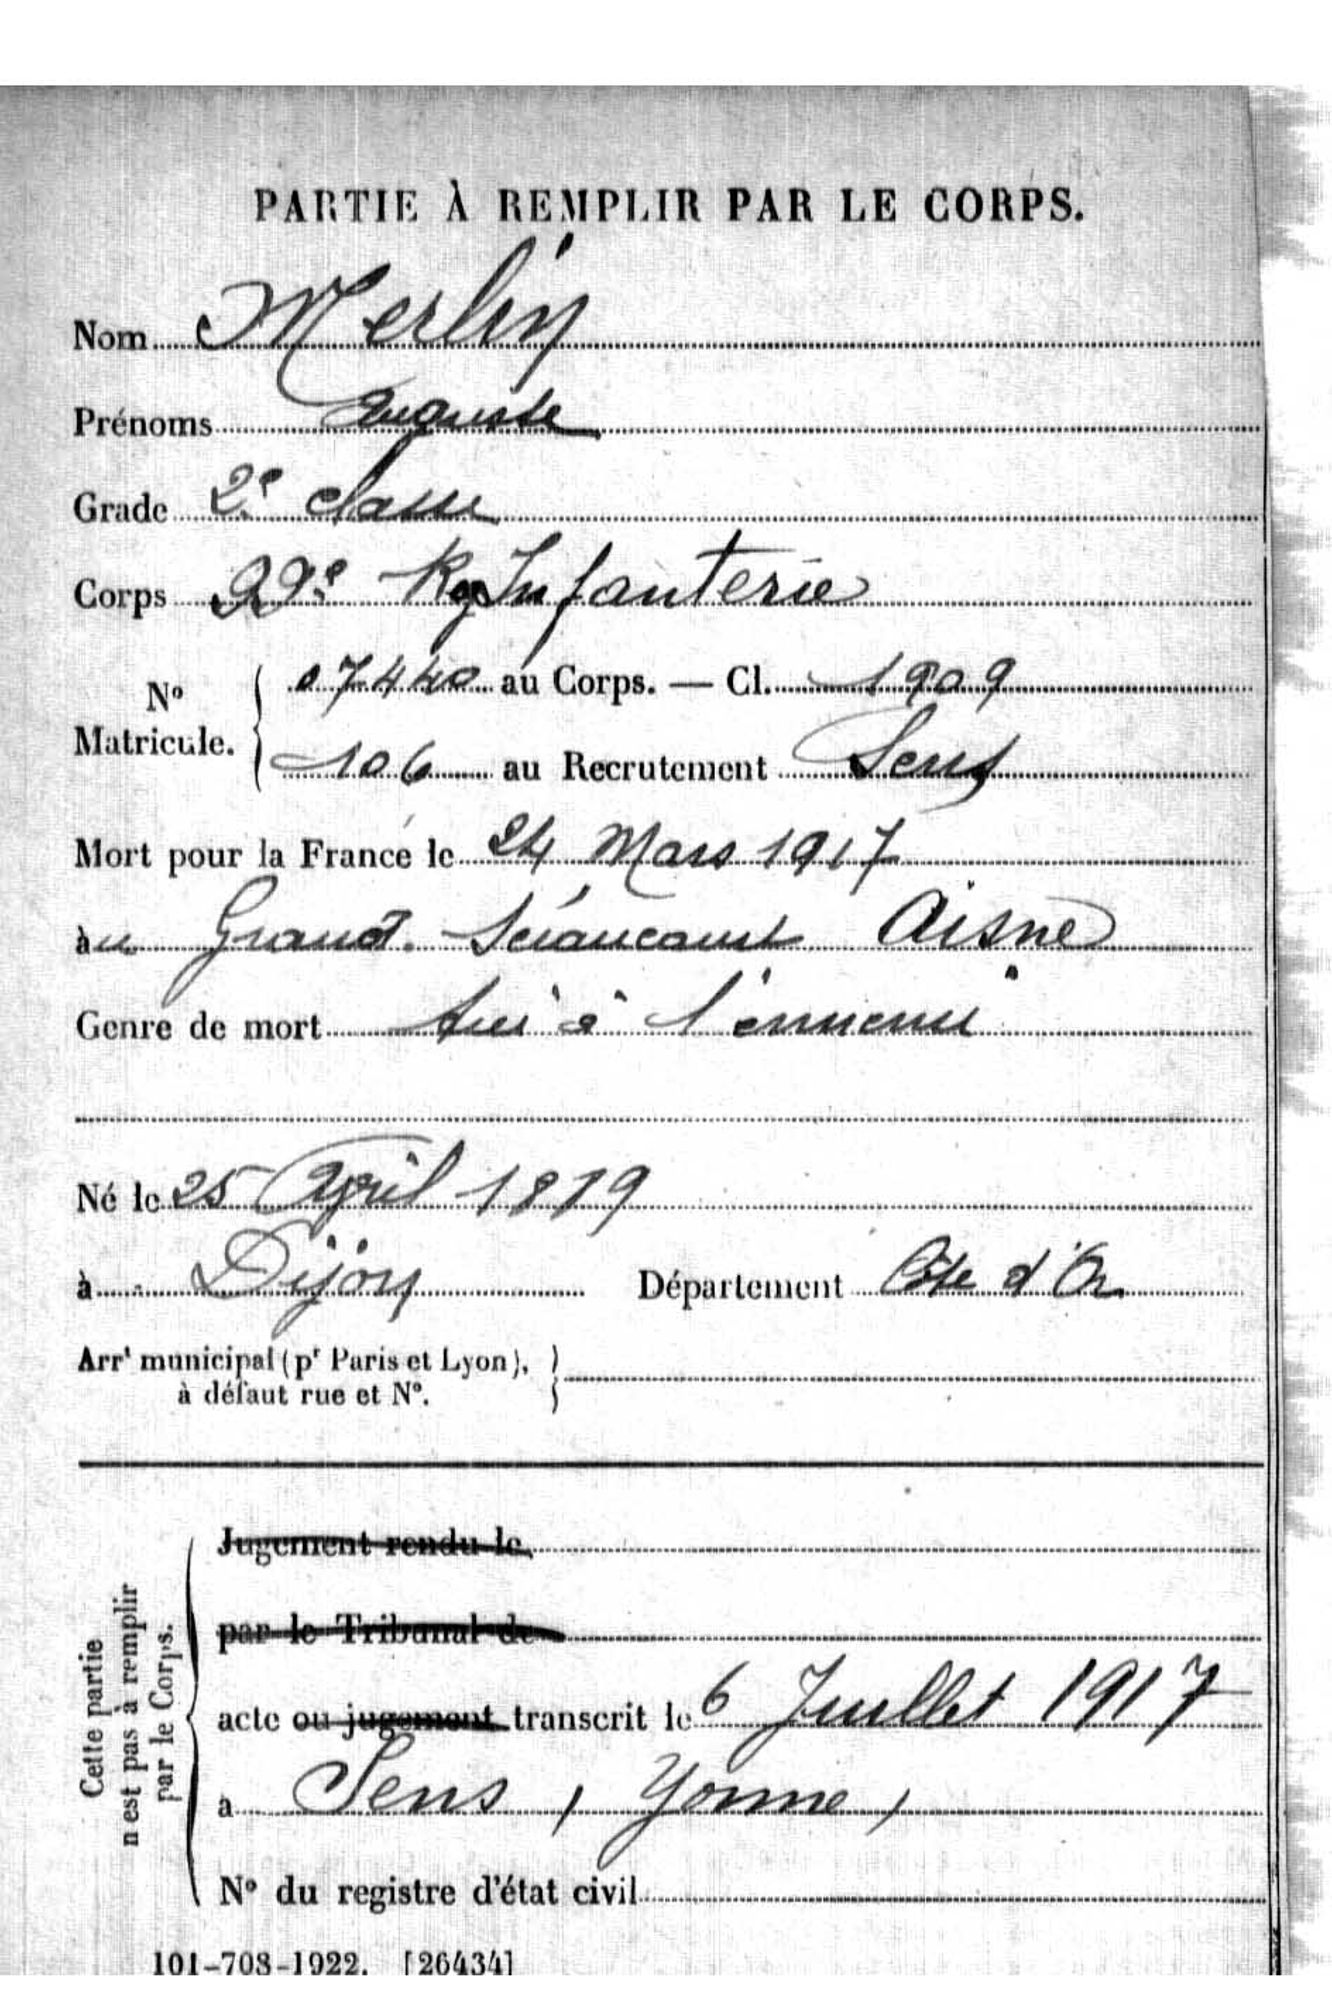 PARTIE À REMPLIR PAR LE CORPS.
Nom Merlin
Prénoms Auguste
Grade 2e classe
Corps 99e Rgt Infanterie
No Matricule. 07440 au Corps. — Cl. 1909
106 au Recrutement Sens
Mort pour la France le 24 Mars 1917
à au Grand Séraucourt Aisne
Genre de mort tué à l'ennemi
Né le 25 Avril 1889
à Dijon Département Côte d'Or
Arrt municipal (pr Paris et Lyon),
à défaut rue et No.
Cette partie
n'est pas à remplir
par le Corps.
Jugement rendu le
par le Tribunal de
acte ou jugement transcrit le 6 Juillet 1917
a Sens, Yonne,
No du registre d'état civil
101-708-1922. [26434]